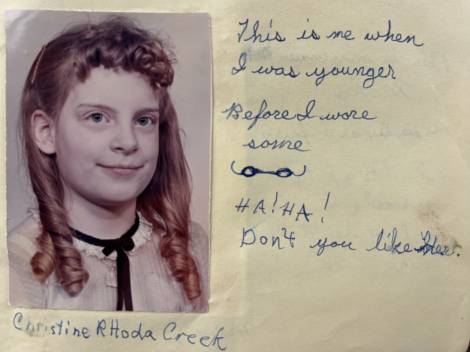 This is me when
I was younger
Before I wore
some
HA! HA!
Don't you like
Christine RHoda Creek